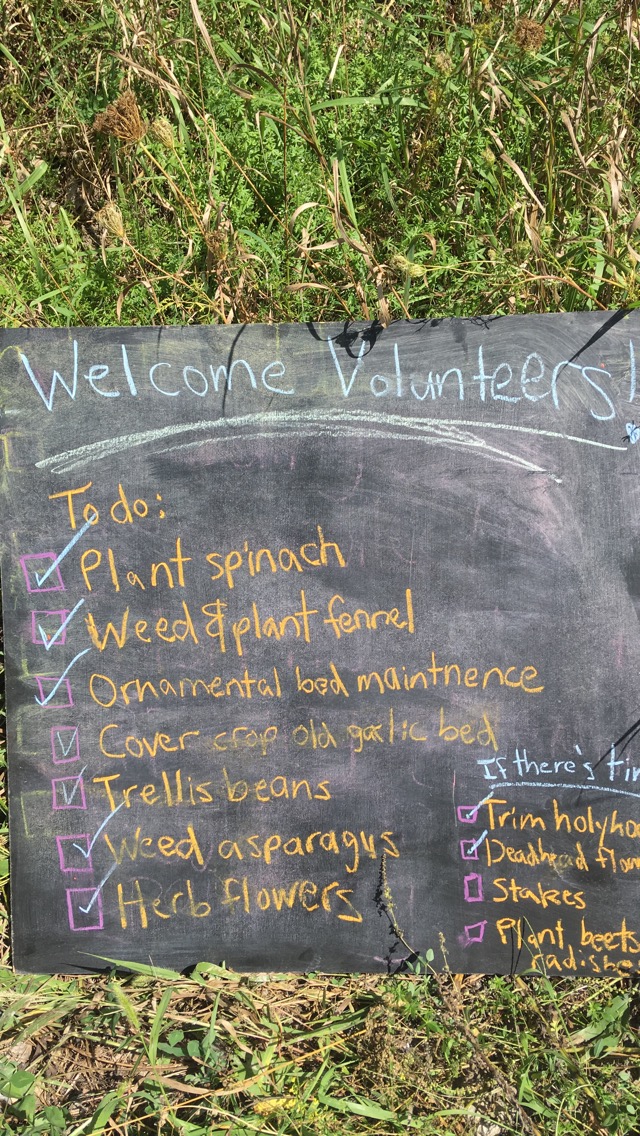 Welcome Volunteers!
To do:
Plant spinach
Weed & plant fennel
Ornamental bed maintnence
Cover crop old garlic bed
Trellis beans
Weed asparagus
Herb flowers
If there's
Trim
Deadhead
Stakes
Plant beets